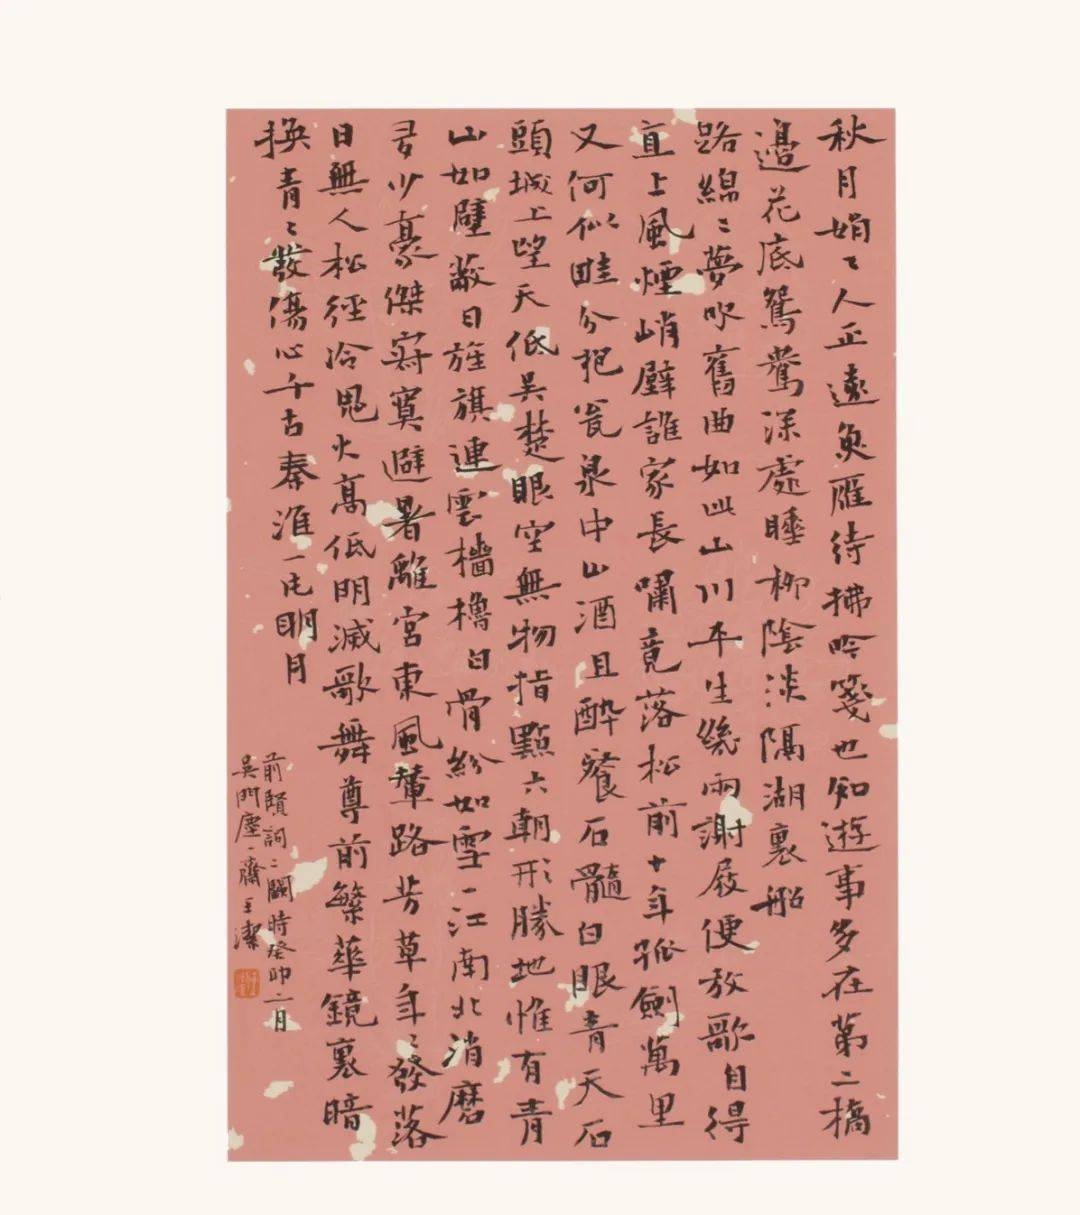 秋月娟〻人正遠魚雁待拂吟箋也知遊事多在第二橋
邊花底鴛鴦深處睡柳陰淡隔湖裏船
路綿〻夢吹舊曲如此山川平生幾兩謝屐便放歌自得
直上風煙峭壁誰家長嘯竟落松前十年孤劍萬里
又何似畦分抱瓮泉中山酒且醉餐石髓白眼青天石
頭城上望天低吳楚眼空無物指點六朝形勝地惟有青
山如壁蔽日旌旗連雲檣櫓白骨紛如雪一江南北消磨
多少豪傑寂寞避暑離宮東風輦路芳草年〻發落
日無人松徑冷鬼火高低明滅歌舞尊前繁華鏡裏暗
換青〻髮傷心千古秦淮一片明月
前賢詞二闋時癸卯二月
吳門塵一齋王潔